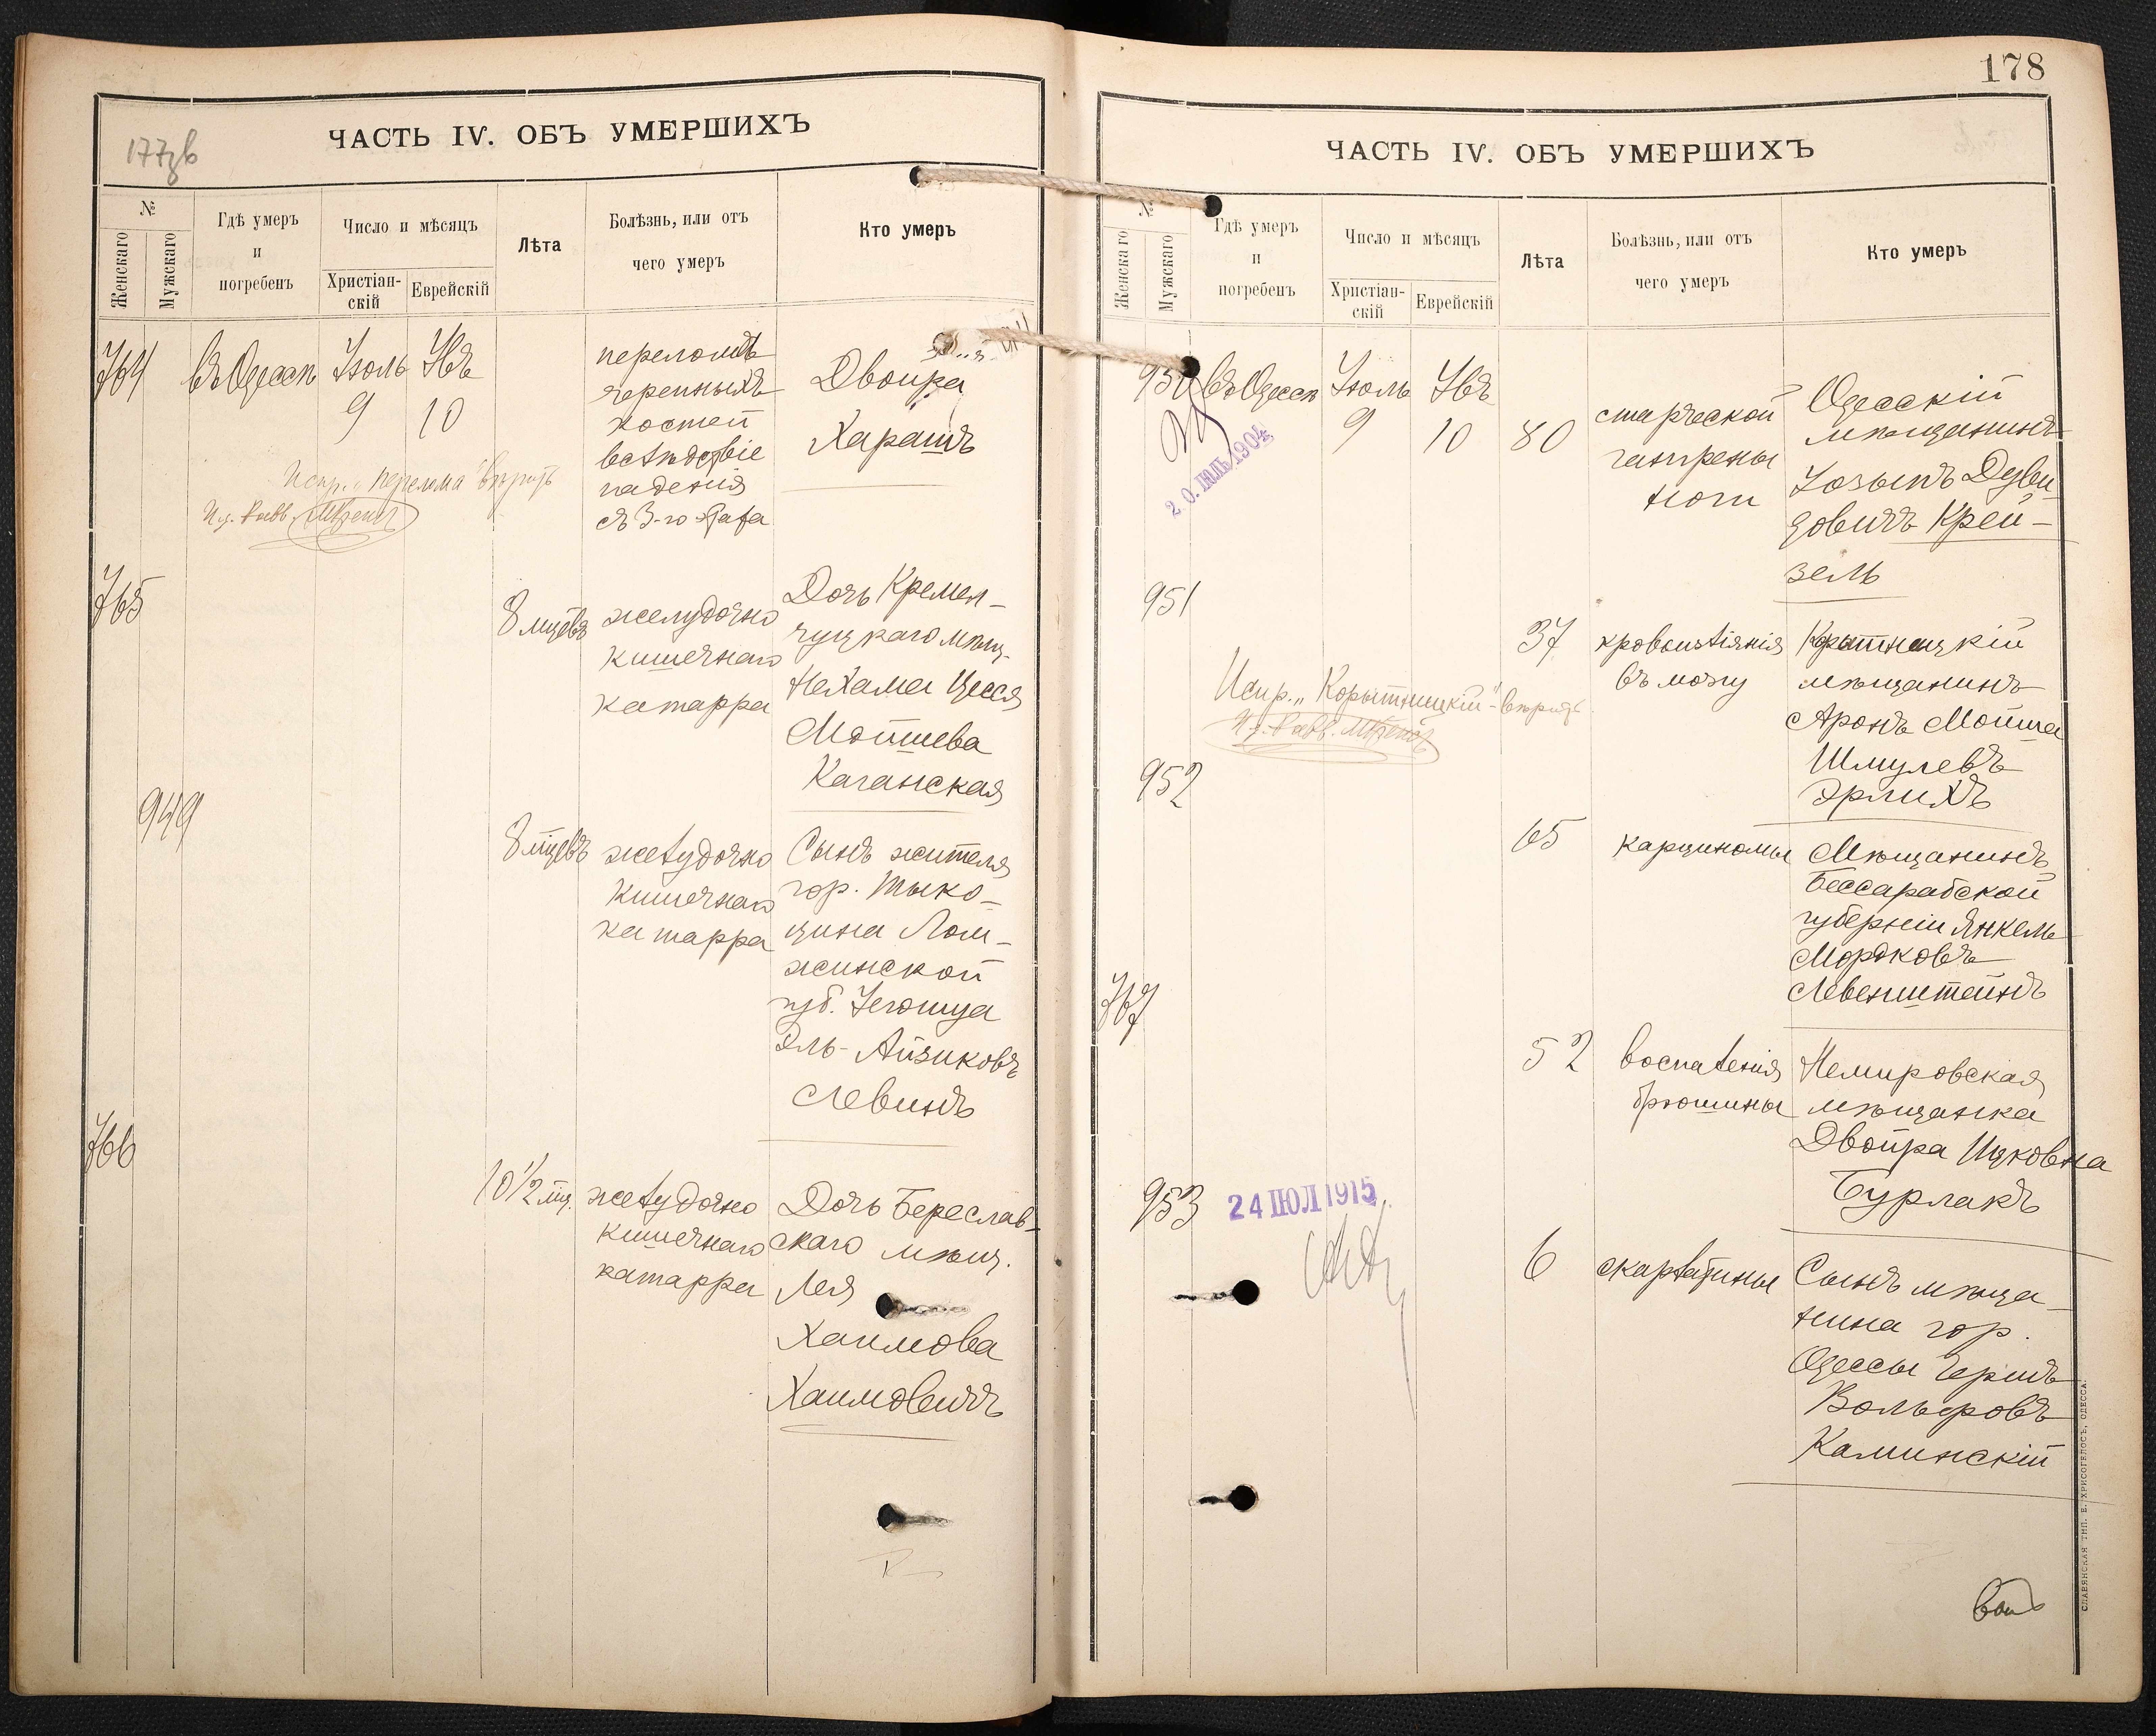 177зв
ЧАСТЬ IV. ОБЪ УМЕРШИХЪ
№
Женскаго
Мужскаго
Гдѣ умеръ
и
погребенъ
Число и мѣсяцъ
Христіан-
скій
Еврейскій
Лѣта
Болѣзнь, или отъ
чего умеръ
Кто умеръ
764
въ Одессѣ
Іюль
9
Ява
10
перелома
черепныхъ
костей
вслѣдствіе
паденія
съ 3-го этажа
Двойра
Харашъ
Испр. "перелома" вѣрить
И. д. Равв.
765
8 мцевъ
желудочно
кишечнаго
катарра
Дочь Кремен-
чуцкаго мѣщ.
Нехама Цесся
Мойшева
Каганская
949
8 мцевъ
желудочно
кишечнаго
катарра
Сынъ жителя
гор. Тыко-
цина Лом-
жинской
губ. Іегошуа
Эль-Айзиковъ
Левинъ
766
10 1/2 мц.
желудочно
кишечнаго
катарра
Дочь Береслав-
скаго мѣщ.
Лея
Хаимова
Хаимовичъ
178
ЧАСТЬ IV. ОБЪ УМЕРШИХЪ
№
Женскаго
Мужскаго
Гдѣ умеръ
и
погребенъ
Число и мѣсяцъ
Христіан-
скій
Еврейскій
Лѣта
Болѣзнь, или отъ
чего умеръ
Кто умеръ
950
въ Одессѣ
Іюль
9
Ява
10
80
старческой
гангрены
ноги
Одесскій
мѣщанинъ
Іозыпъ Дуви-
довичъ Крей-
зель
20. ІЮЛЬ 1904
951
37
кровоизліянія
въ мозгу
Корытницкій
мѣщанинъ
Аронъ Мойше
Шмулевъ
Эрлихъ
Испр. "Корытницкій" - вѣрить
И. д. Равв.
952
65
карциномы
Мѣщанинъ
Бессарабской
губерніи Янкель
Мордковъ
Левенштейнъ
767
52
воспаленія
брюшины
Немировская
мѣщанка
Двойра Ицковна
Бурлакъ
953
24 ІЮЛ 1915
6
скарлатины
Сынъ мѣща-
нина гор.
Одессы Гершъ
Вольфовъ
Каминскій
СЛАВЯНСКАЯ ТИП. Е. ХРИСОГЕЛОСЪ, ОДЕССА.